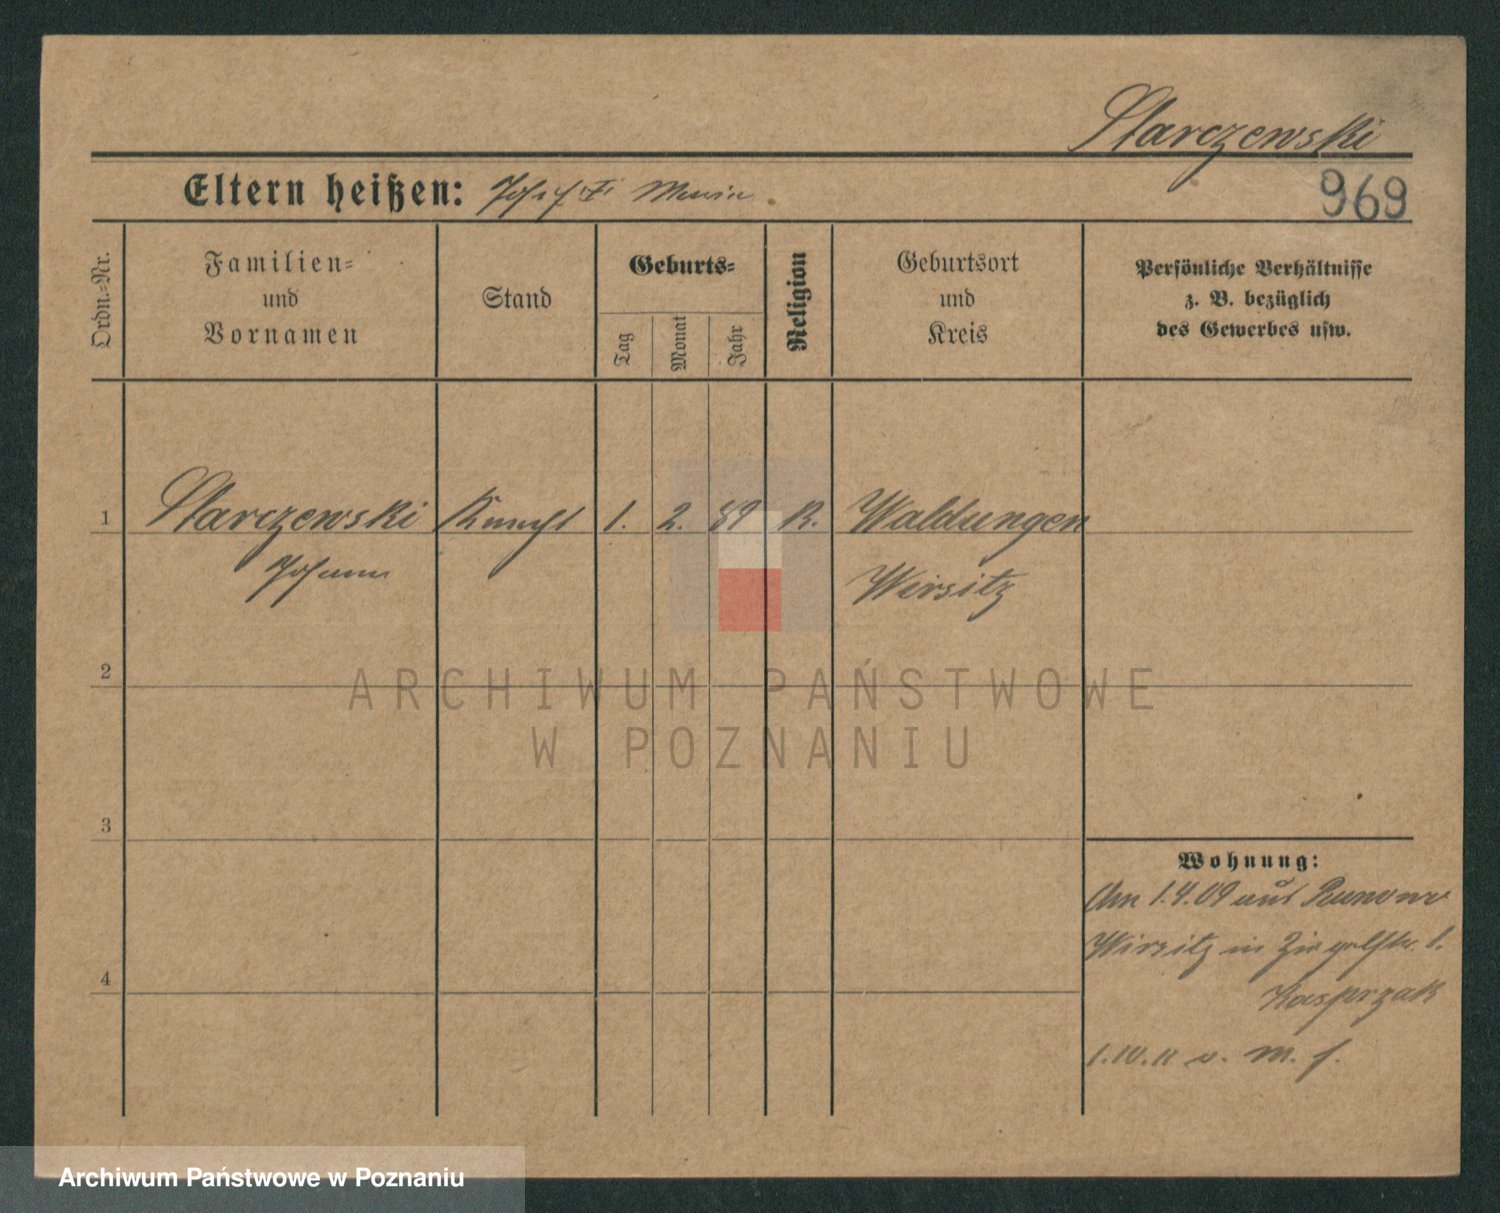 Starczewski
Eltern heißen: Josef Maria
969
Ordn.-Nr.
Familien-
und
Vornamen
Stand
Geburts-
Tag
Monat
Jahr
Religion
Geburtsort
und
Kreis
Persönliche Verhältnisse
z. B. bezüglich
des Gewerbes usw.
1 Starczewski Knecht 1. 2. 89 K. Waldungen
Johann Wirsitz
2
3
4
Wohnung:
Am 1.4.09 aus Runowo
Wirsitz in Ziegelstr. 1.
Kasprzak
ARCHIWUM PAŃSTWOWE
W POZNANIU
Archiwum Państwowe w Poznaniu